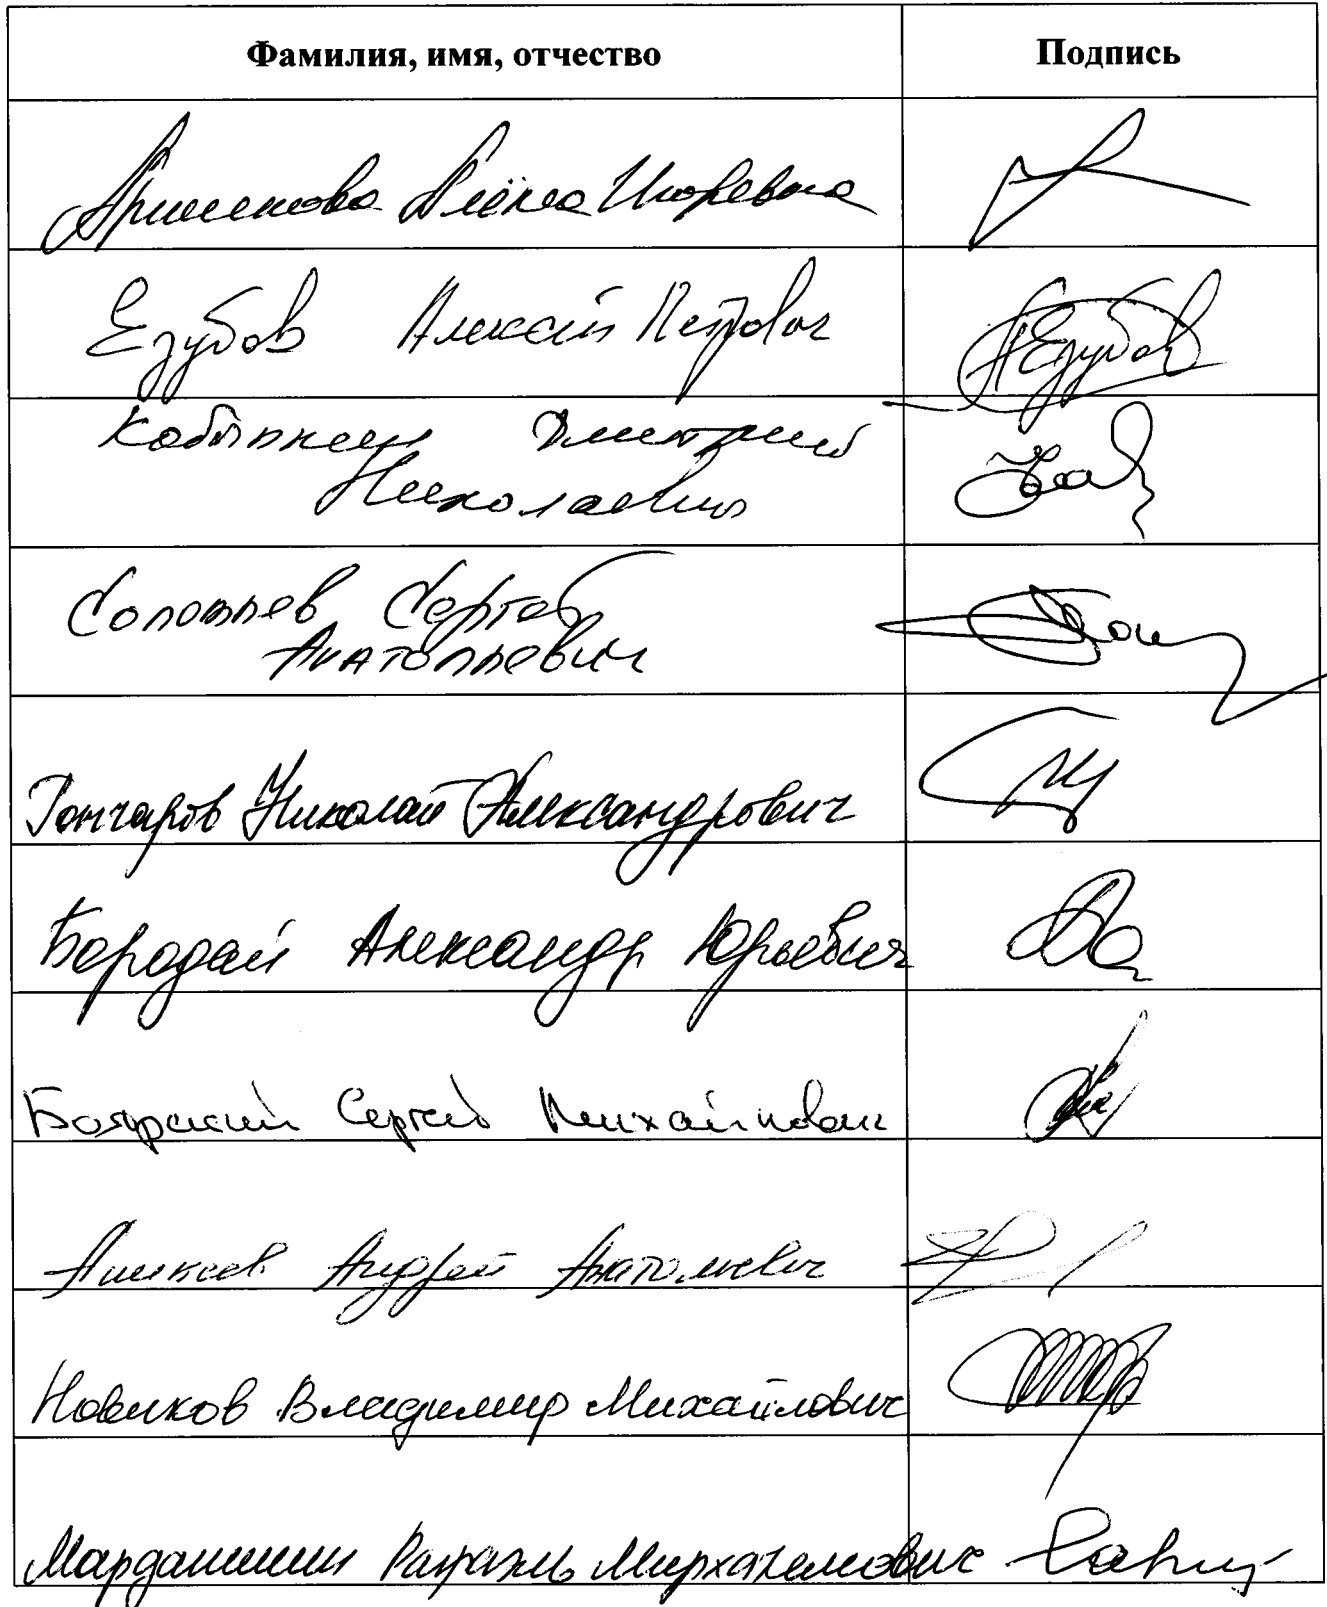 Фамилия, имя, отчество Подпись
Аршинова Алёна Игоревна
Езубов Алексей Петрович Езубов
Кобылкин Дмитрий
Николаевич
Соловьев Сергей
Анатольевич
Гончаров Николай Александрович
Бородай Александр Юрьевич
Боярский Сергей Михайлович
Алексеев Андрей Анатольевич
Новиков Владимир Михайлович
Марданшин Рафаэль Мирхатимович